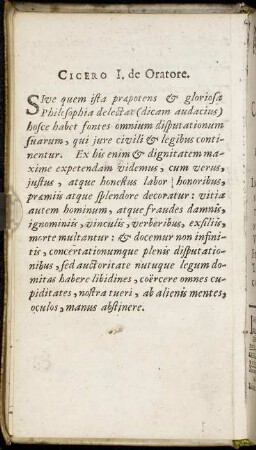 CICERO I. de Oratore.
SIve quem ista præpotens & gloriosa
Philosophia delectat (dicam audacius)
hosce habet fontes omnium disputationum
suarum, qui jure civili & legibus conti-
nentur. Ex his enim & dignitatem ma-
xime expetendam videmus, cum verus,
justus, atque honestus labor honoribus,
præmiis atque splendore decoratur: vitia
autem hominum, atque fraudes damnis,
ignominiis, vinculis, verberibus, exsiliis,
morte multantur: & docemur non infini-
tis, concertationumque plenis disputatio-
nibus, sed auctoritate nutuque legum do-
mitas habere libidines, coërcere omnes cu-
piditates, nostra tueri, ab alienis mentes,
oculos, manus abstinere.